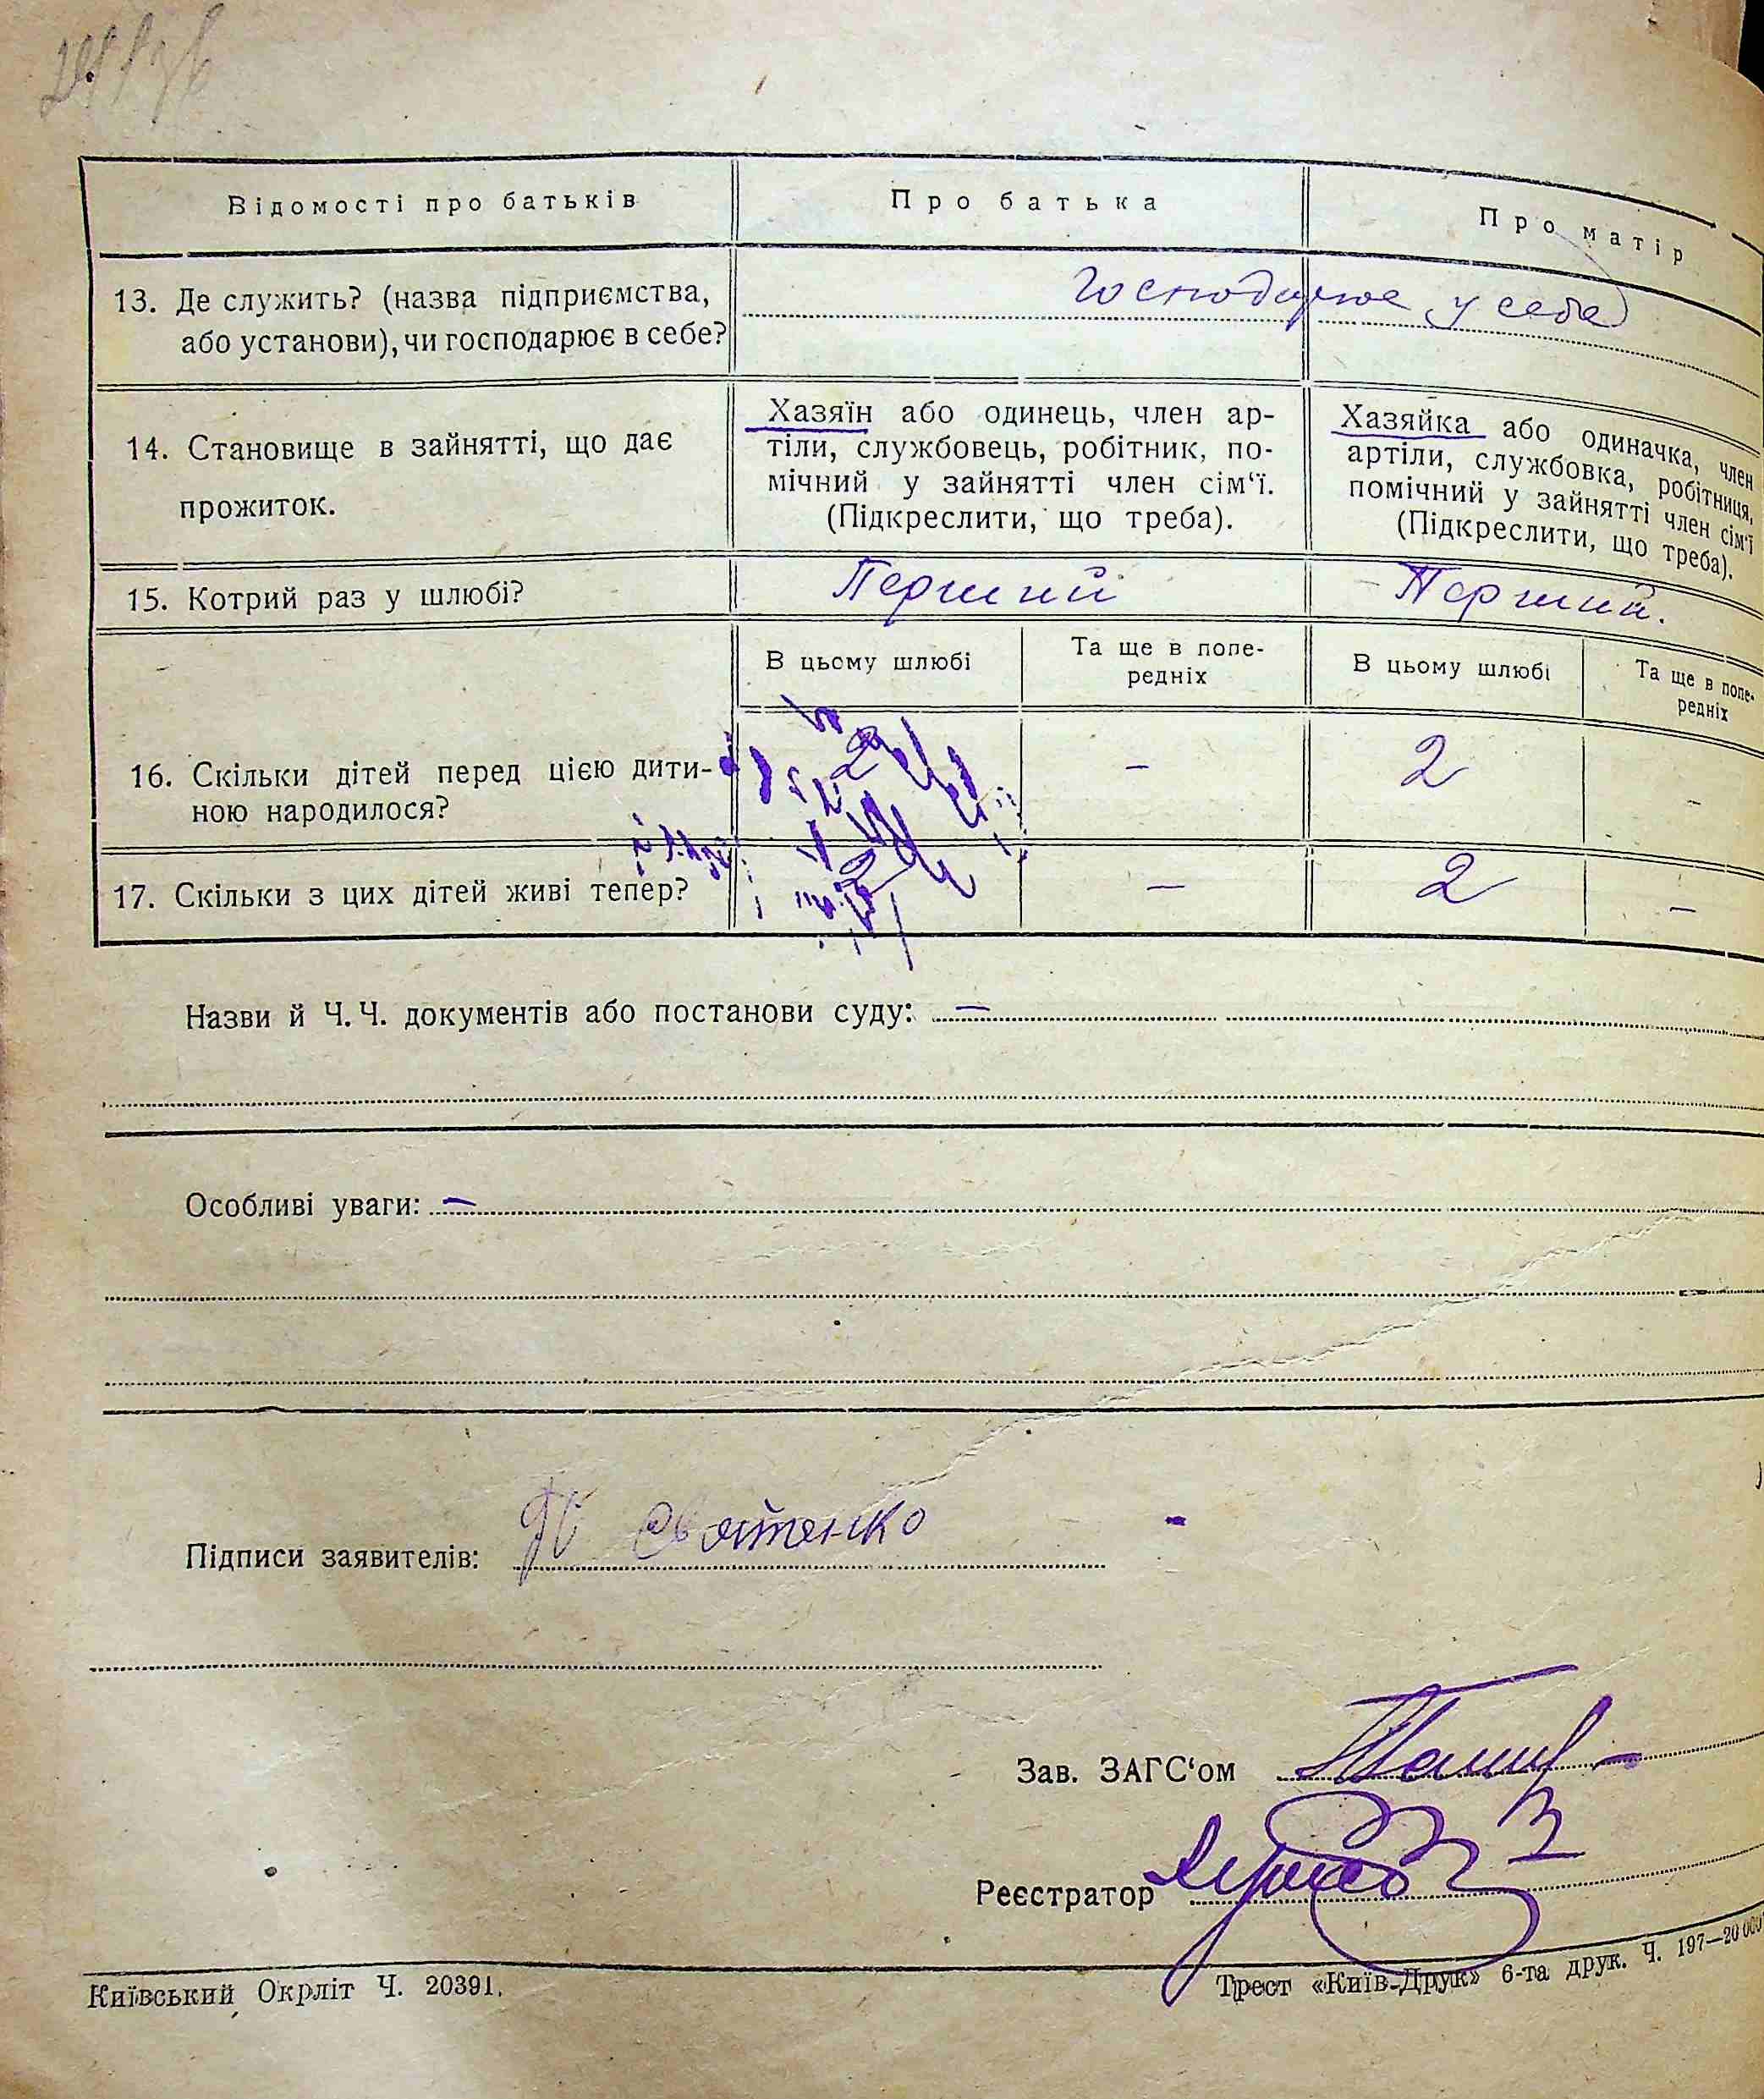 Відомості про батьків
Про батька
Про матір
13. Де служить? (назва підприємства,
або установи), чи господарює в себе?
господарює у себе
14. Становище в зайнятті, що дає
прожиток.
Хазяїн або одинець, член ар-
тіли, службовець, робітник, по-
мічний у зайнятті член сім‘ї.
(Підкреслити, що треба).
Хазяйка або одиначка, член
артіли, службовка, робітниця,
помічний у зайнятті член сім‘ї
(Підкреслити, що треба).
15. Котрий раз у шлюбі?
Перший
Перший.
В цьому шлюбі
Та ще в попе-
редніх
В цьому шлюбі
Та ще в попе-
редніх
16. Скільки дітей перед цією дити-
ною народилося?
2
–
2
–
17. Скільки з цих дітей живі тепер?
2
–
2
–
Назви й Ч. Ч. документів або постанови суду: –
Особливі уваги: –
Підписи заявителів: Святенко
Зав. ЗАГС‘ом
Реєстратор
Київський Окрліт Ч. 20391.
Трест «Київ-Друк» 6-та друк. Ч. 197—20 000